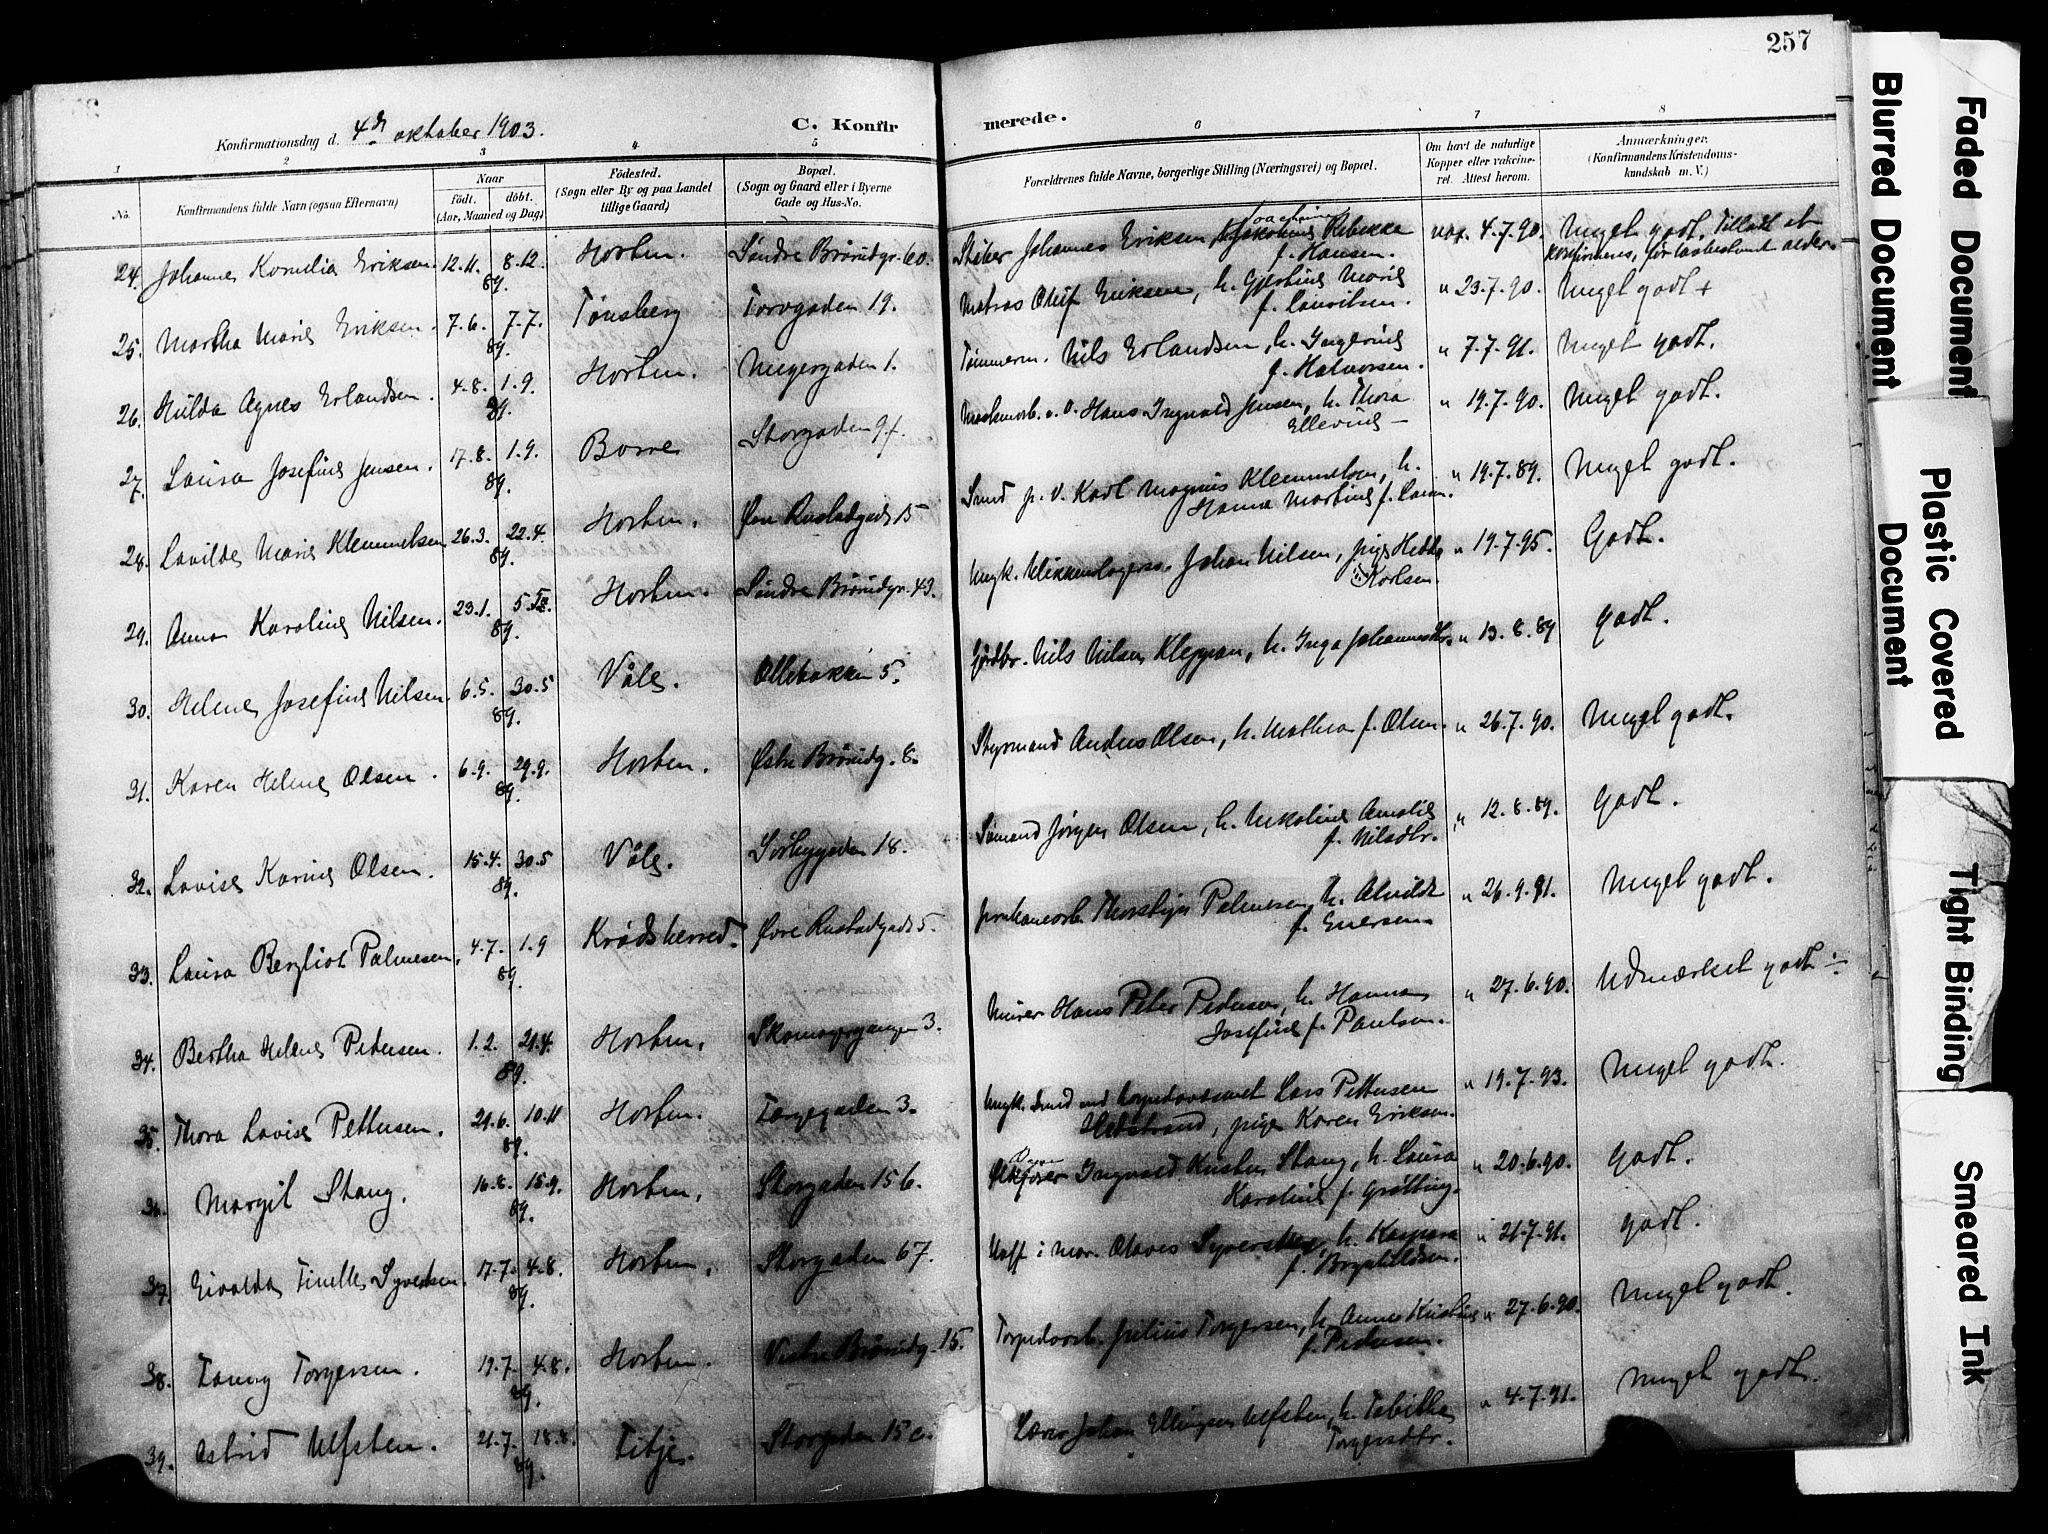 257
Konfirmationsdag d. 4de oktober 1903.
C. Konfir
merede.
1
2
3
4
5
6
7
8
No.
Konfirmandens fulde Navn (ogsaa Efternavn)
Naar
födt.
döbt.
(Aar, Maaned og Dag)
Födested.
(Sogn eller By og paa Landet
tillige Gaard)
Bopæl.
(Sogn og Gaard eller i Byerne
Gade og Hus-No.
Forældrenes fulde Navne, borgerlige Stilling (Næringsvei) og Bopæl.
Om havt de naturlige
Kopper eller vakcine-
ret. Attest herom.
Anmærkninger.
(Konfirmandens Kristendoms-
kundskab m. V.)
24. Johanne Kornelia Eriksen. 12.11. 8.12. 89. Horten. Söndre Brårudgr. 60. Johannes Eriksen, Rebekka f. Hansen. 4.7.90. Meget godt. Tilladt at konfirmeres, før lovbestemt alder.
25. Martha Marie Eriksen. 7.6. 7.7. 89. Tønsberg Torvgaden 19. Matros Oluf Eriksen, h. Marie f. Lauritsen. " 23.7.90. Meget godt +
26. Hilda Agnes Erlandsen. 4.8. 1.9. 89. Horten. Meyergaden 1. Tømmerm. Nils Erlandsen, h. Ingerine f. Halvorsen. " 7.7.91. Meget godt.
27. Laura Josefine Jensen. 17.8. 1.9. 89. Borre Storgaden 97. Hans Ingvald Jensen, h. Thora Ellevine — " 19.7.90. Meget godt.
28. Lovilde Marie Klemmetsen 26.3. 22.4. 89. Horten. Øvre Rustadgade 15 Smed p. V. Karl Magnus Klemmetsen, h. Hanna Martine f. " 19.7.89. Meget godt.
29. Anna Karoline Nilsen. 23.1. 89. Horten. Søndre Brårudgr. 43. Johan Nilsen, pige Karlsen. " 19.7.95. Godt.
30. Helene Josefine Nilsen. 6.5. 30.5 89. Våle. Ollebakken 5. Nils Nilsen Kleppan, h. Inga Johannesdtr. " 13.8.89 Godt.
31. Karen Helene Olsen. 6.9. 29.9. 89. Horten. Østre Brårudg. 8. Styrmand Anders Olsen, h. Mathea f. Olsen. " 26.7.90. Meget godt.
32. Lovise Karine Olsen. 15.4. 30.5 89. Våle. Sørbygaden 18. Sømand Jørgen Olsen, h. Nikoline Amalie f. Nilsdtr. " 12.8.89. Godt.
33. Laura Bergliot Palmesen. 4.7. 1.9 89. Krødsherred. Øvre Rustadgade 5. Thorstein Palmesen, h. Alvilde f. Eversen. " 26.9.91. Meget godt.
34. Bertha Helene Pedersen. 1.2. 21.4. 89. Horten. Skomagergangen 3. Murer Hans Peter Pedersen, h. Hanna Josefine f. Paulsen. " 27.6.90. Udmærket godt ÷
35. Thora Lovise Pettersen. 21.6. 10.11 89. Horten. Torvegaden 3. Ungk. Smed ved torpedovæsenet Lars Pettersen Hedstrand, pige Karen Eriksen. " 19.7.93. Meget godt.
36. Margit Stang. 16.8. 15.9. 89. Horten. Storgaden 156. Ingvald Kristen Stang, h. Laura Karoline f. Grøtting. " 20.6.90. Godt.
37. Eivalda Tinelle Syvertsen. 17.7. 4.8. 89. Horten. Storgaden 67. Uoff. i mar. Olaves Syvertsen, h. Kaspara f. Bryntildsen. " 21.7.91. Godt.
38. Fanny Torgersen. 19.7. 4.8. 89. Horten. Vestre Brårudg. 15. Torpedoarb. Julius Torgersen, h. Anne Kristine f. Pedersen. " 27.6.90. Meget godt.
39. Astrid Ulfsten. 21.7. 18.8. 89. Storgaden 15 c. Lærer Johan Ellingsen Ulfsten, h. Tabitha Torgersdtr. " 4.7.91. Meget godt.
Faded Document
Blurred Document
Plastic Covered
Document
Tight Binding
Smeared Ink